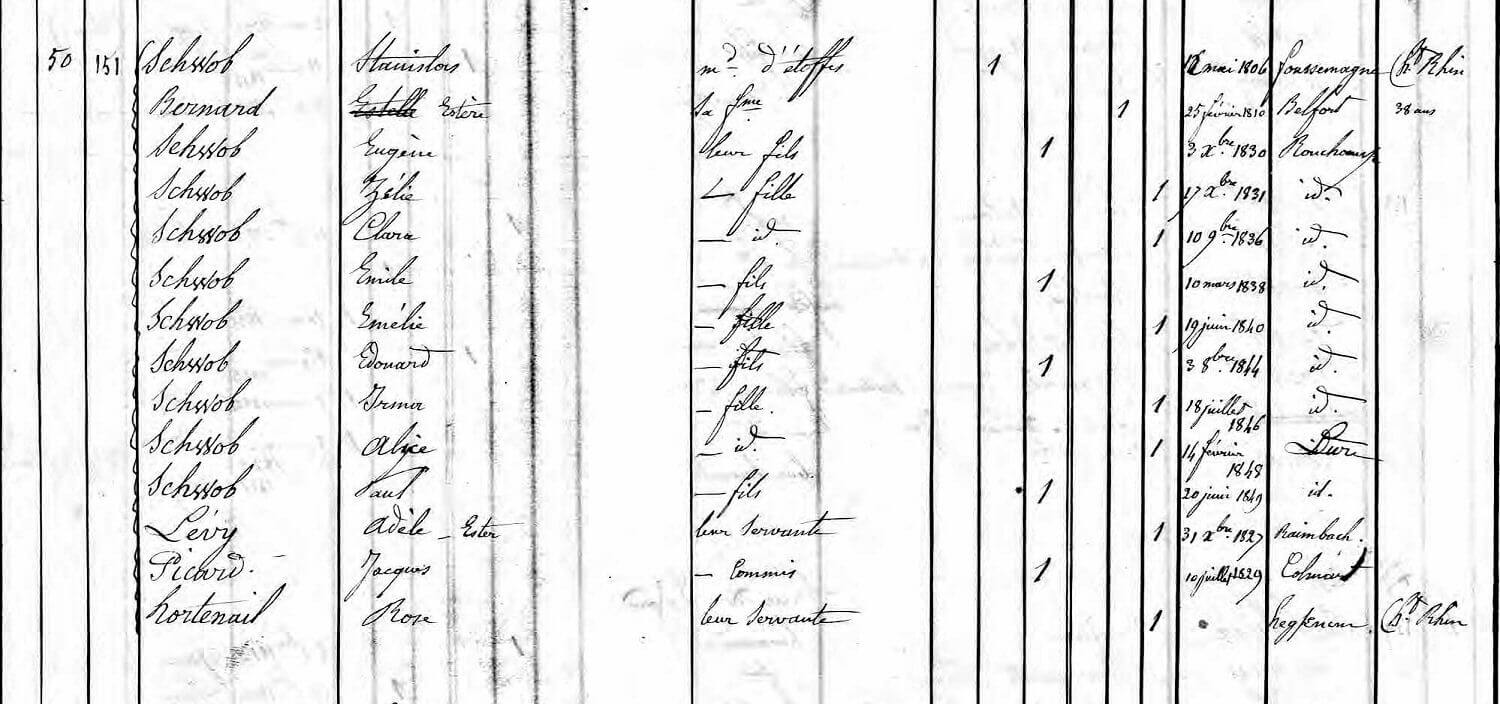 50 151 Schwob Stanislas md. d'étoffes 1 mai 1806 foussemagne (ht Rhin
Bernard Estelle Estère Sa fme 1 25 février 1810 Belfort 38 ans
Schwob Eugène leur fils 1 3 Xbre 1830 Ronchamp
Schwob Zélie — fille 1 17 Xbre 1831 id.
Schwob Clara — id. 1 10 9bre 1836 id.
Schwob Emile — fils 1 10 mars 1838 id.
Schwob Emélie — fille 1 19 juin 1840 id.
Schwob Edouard — fils 1 3 8bre 1844 id.
Schwob Irma — fille. 1 18 juillet 1846 id.
Schwob Alice — id. 1 14 février 1848 Lure
Schwob Paul — fils 1 20 juin 1849 id.
Lévy Adèle - Ester leur Servante 1 31 Xbre 1827 Raimbach.
Picard. Jacques — Commis 1 10 juillet 1829 Colmar
hortenail Rose leur Servante 1 (ht Rhin